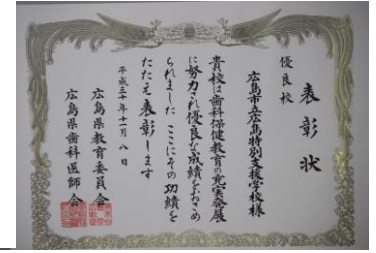 表彰状
優良校
広島市立広島特別支援学校様
貴校は歯科保健教育の充実発展
に努力され優良な成績をおさめ
られました ここにその功績を
たたえ表彰します
平成三十年十一月八日
広島県教育委員会
広島県歯科医師会